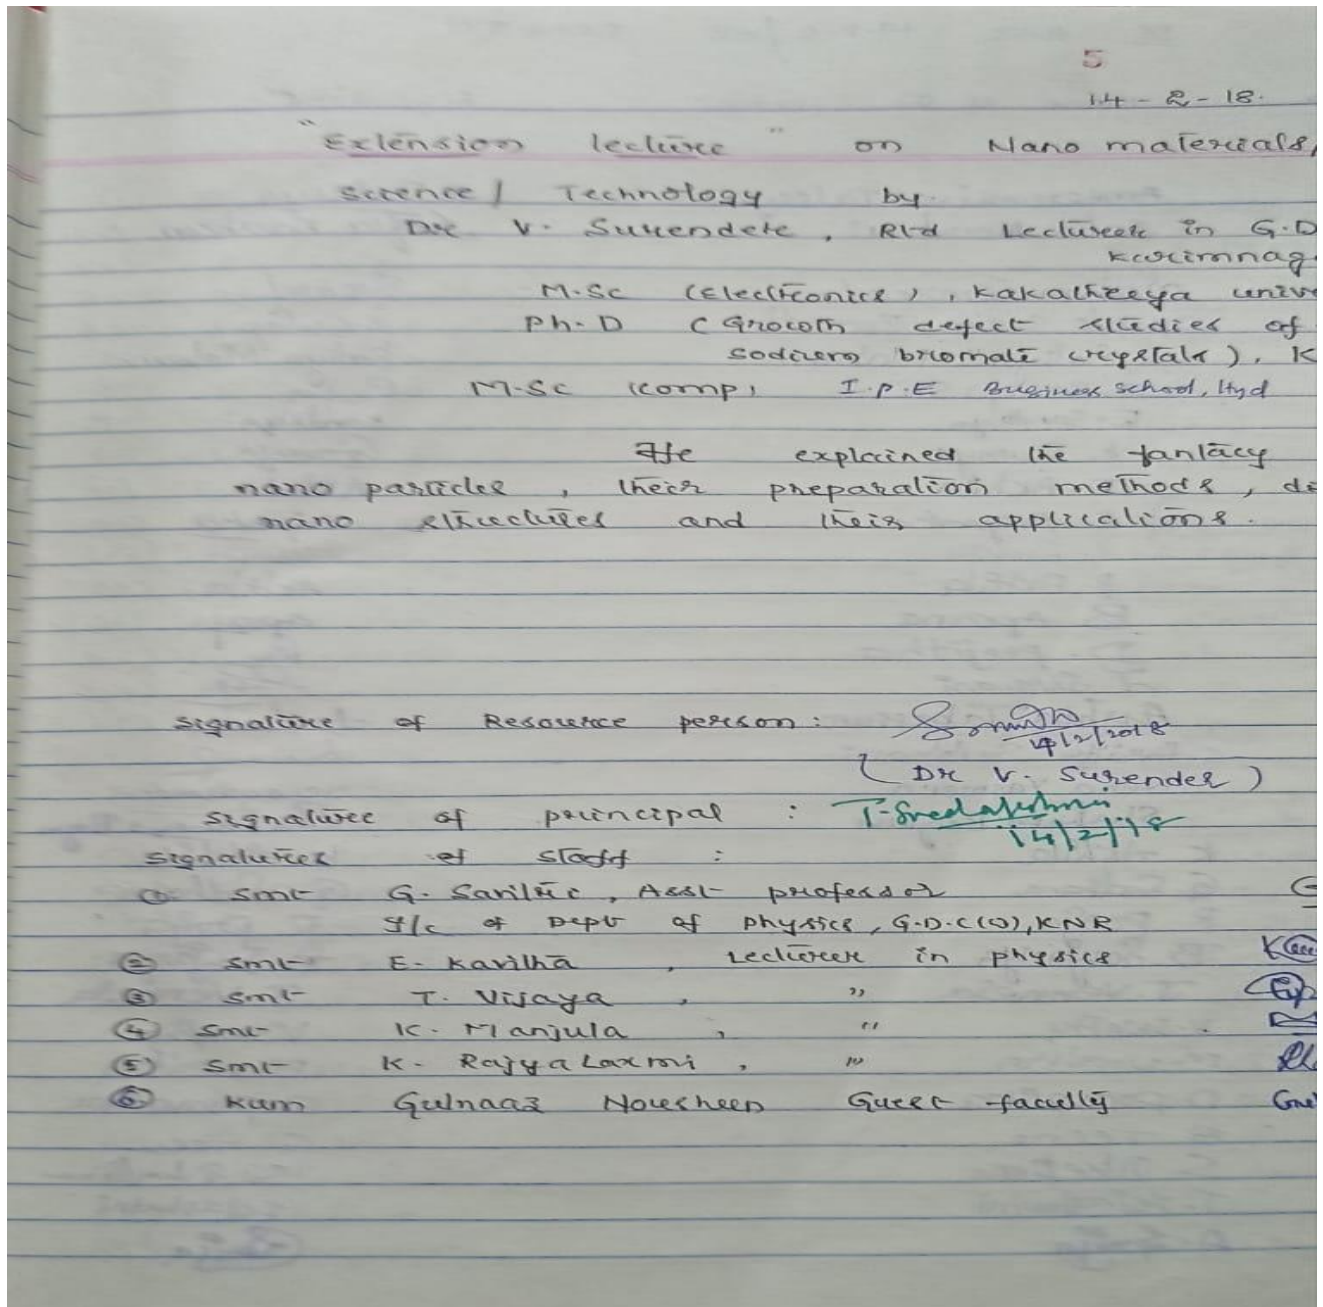 5
14-2-18.
"Extension lecture" on Nano materials,
Science / Technology by
Dr V. Surender, Rtd Lecturer in G.D
Karimnag
M.Sc (Electronics), Kakatheeya univ
Ph.D (Growth defect studies of
sodium bromate crystals), K
M.Sc (comp, I.P.E Business School, Hyd
He explained the fantacy
nano particles, their preparation methods, de
nano structures and their applications.
Signature of Resource person:
14/2/2018
(Dr V. Surender)
Signature of principal : T. Sreelakshmi
14/2/18
Signatures of staff :
① Smt G. Saritha, Asst professor G
I/c of Dept of Physics, G.D.C(W), KNR
② Smt E. Kavitha, Lecturer in physics
③ Smt T. Vijaya, "
④ Smt K. Manjula, "
⑤ Smt K. Rajya Laxmi, "
⑥ Kum Gulnaaz Nousheen Guest faculty